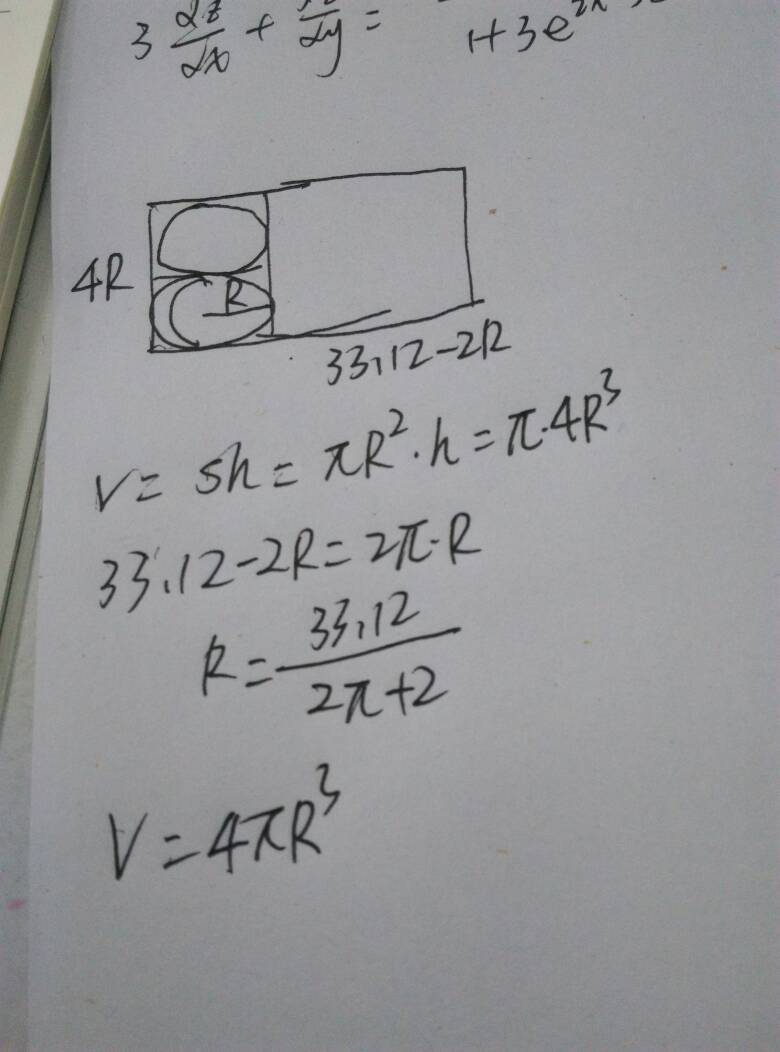 3 ∂z/∂x + /∂y =
1+3e
4R
R
33.12-2R
V= Sh = πR²·h = π·4R³
33.12-2R=2π·R
R= 33.12/2π+2
V=4πR³